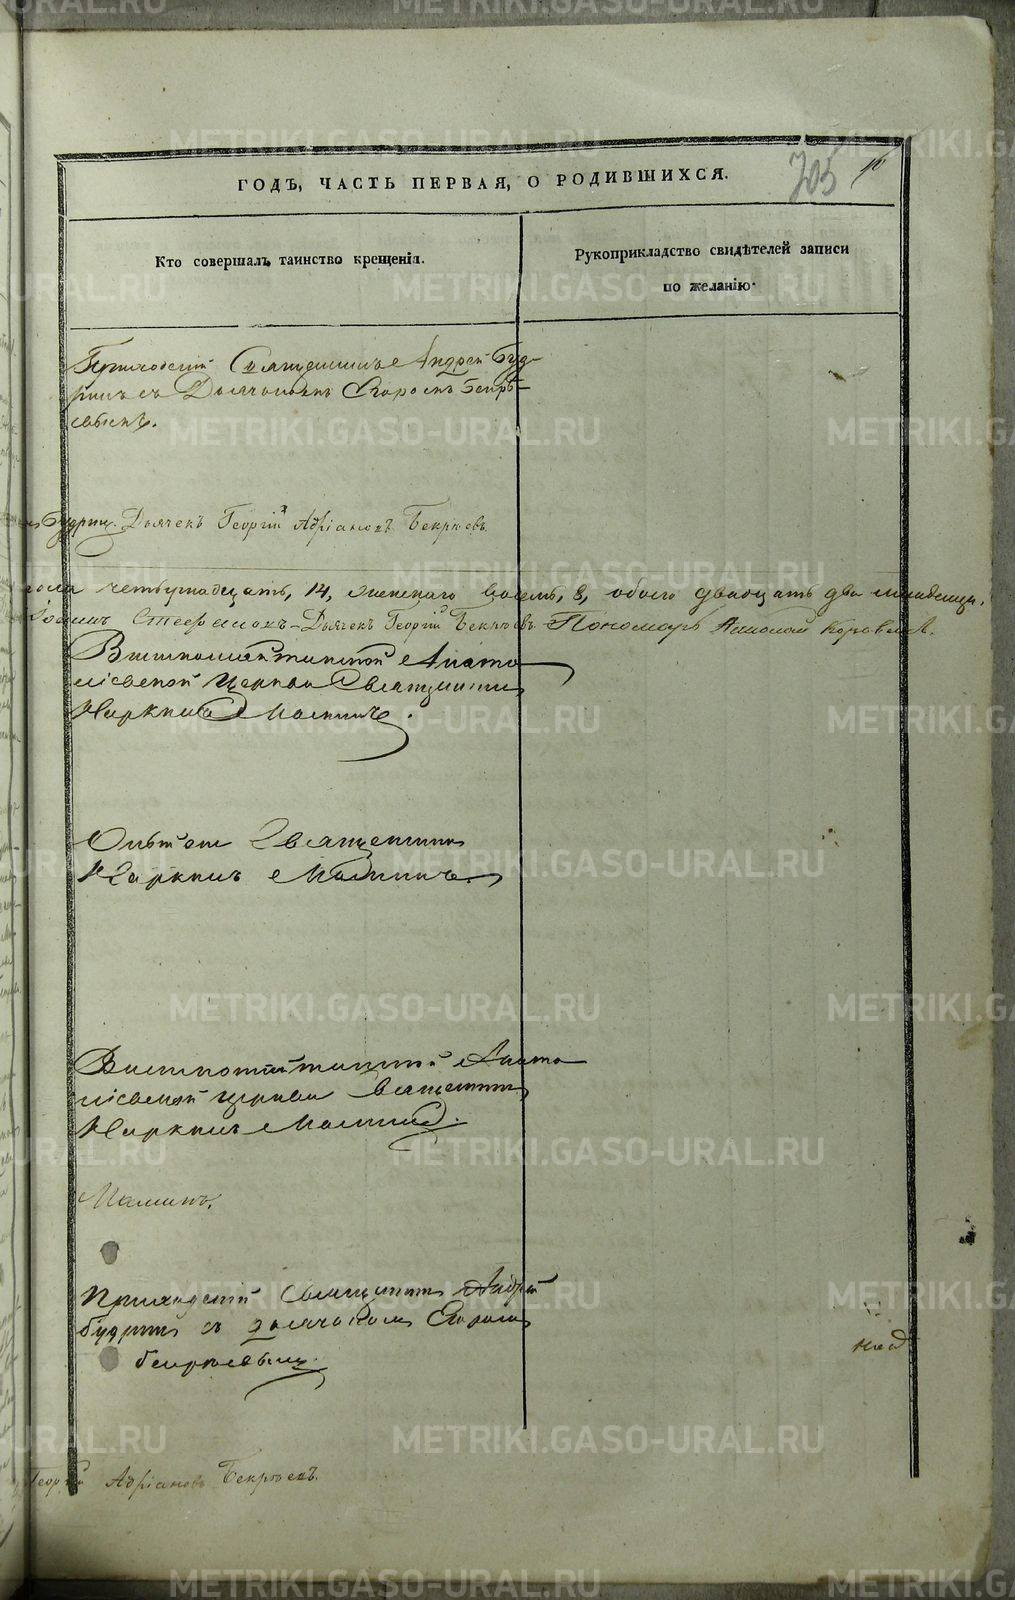 705
ГОДЪ, ЧАСТЬ ПЕРВАЯ, О РОДИВШИХСЯ.
Кто совершалъ таинство крещенія.
Рукоприкладство свидѣтелей записи
по желанію.
Приходскій Священникъ Андрей Буд-
ринъ съ Дьячкомъ Егоромъ Бекрѣ-
евымъ.
Будринъ. Дьячекъ Георгій Адріановъ Бекрѣевъ
пола четырнадцать, 14, женскаго восемь, 8, обоего двадцать два младенца.
Іоаннъ Стефановъ Дьячекъ Георгій Бекрѣевъ Пономарь Николай
церкви Священникъ
Наркисъ Маминъ.
Священникъ
Наркисъ Маминъ.
церкви Священникъ
Наркисъ Маминъ.
Маминъ.
Приходскій Священникъ Андрей
Будринъ съ дьячкомъ Егоромъ
Бекрѣевымъ.
Георгій Адріановъ Бекрѣевъ.
METRIKI.GASO-URAL.RU